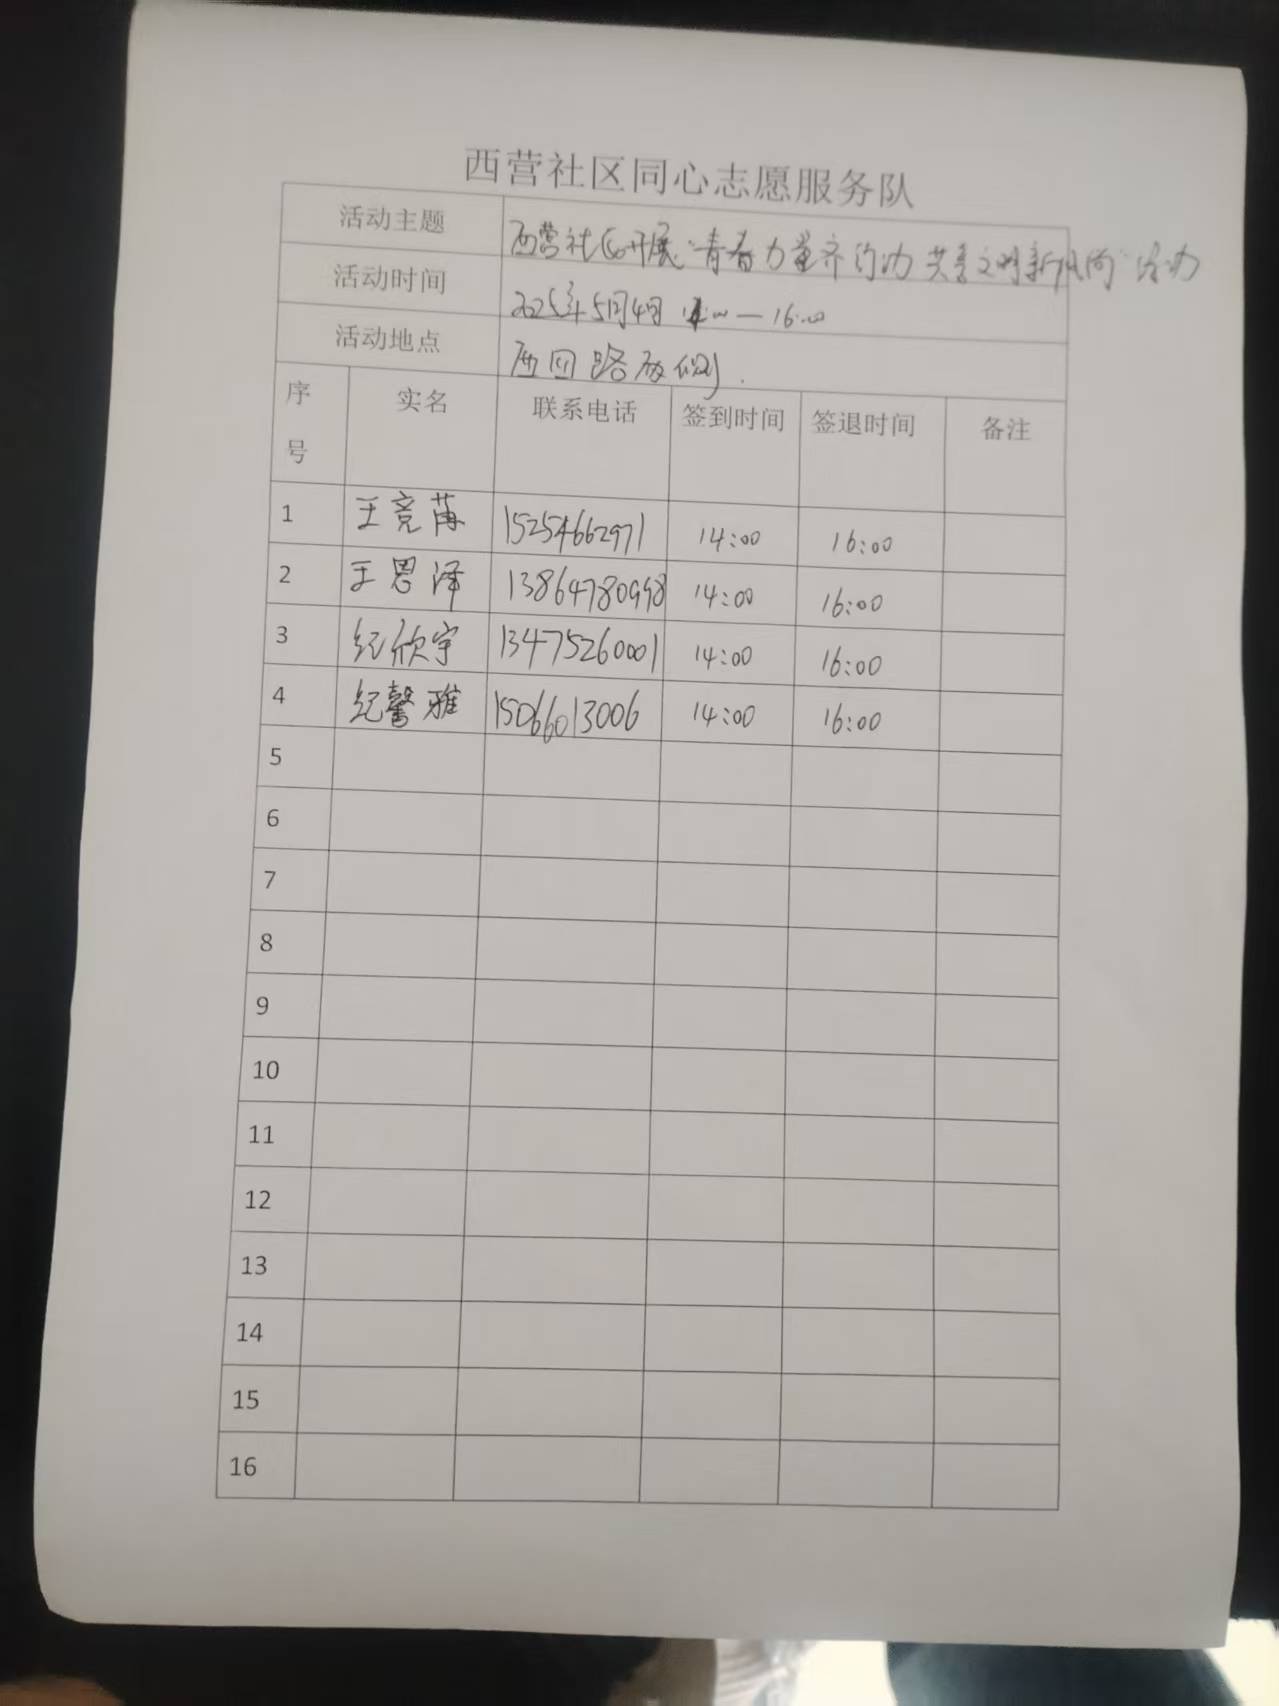 西营社区同心志愿服务队
活动主题 西营社区开展“青春力量齐行动 共 文明新风尚”活动
活动时间 2025年5月4日 14:00—16:00
活动地点 西四路
序号 实名 联系电话 签到时间 签退时间 备注
1 王竞苒 15254662971 14:00 16:00
2 王思泽 13864780998 14:00 16:00
3 纪欣宇 13475260001 14:00 16:00
4 纪馨雅 15066013006 14:00 16:00
5
6
7
8
9
10
11
12
13
14
15
16